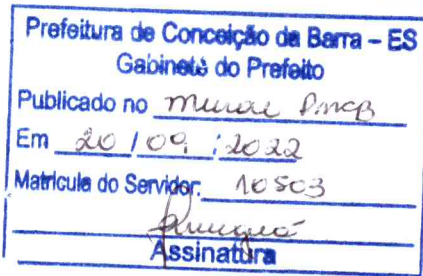 Prefeitura de Conceição da Barra – ES
Gabinete do Prefeito
Publicado no mural PMCB
Em 20 / 09 / 2022
Matricula do Servidor: 10503
Assinatura